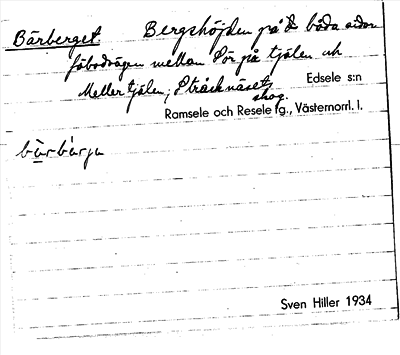 Bärberget Bergshöjden på båda sidor
fäbodvägen mellan Sör på tjälen och
Mellertjälen; Stråcknäsets
skog.
Edsele s:n
Ramsele och Resele tg., Västernorrl. l.
bärbärja
Sven Hiller 1934